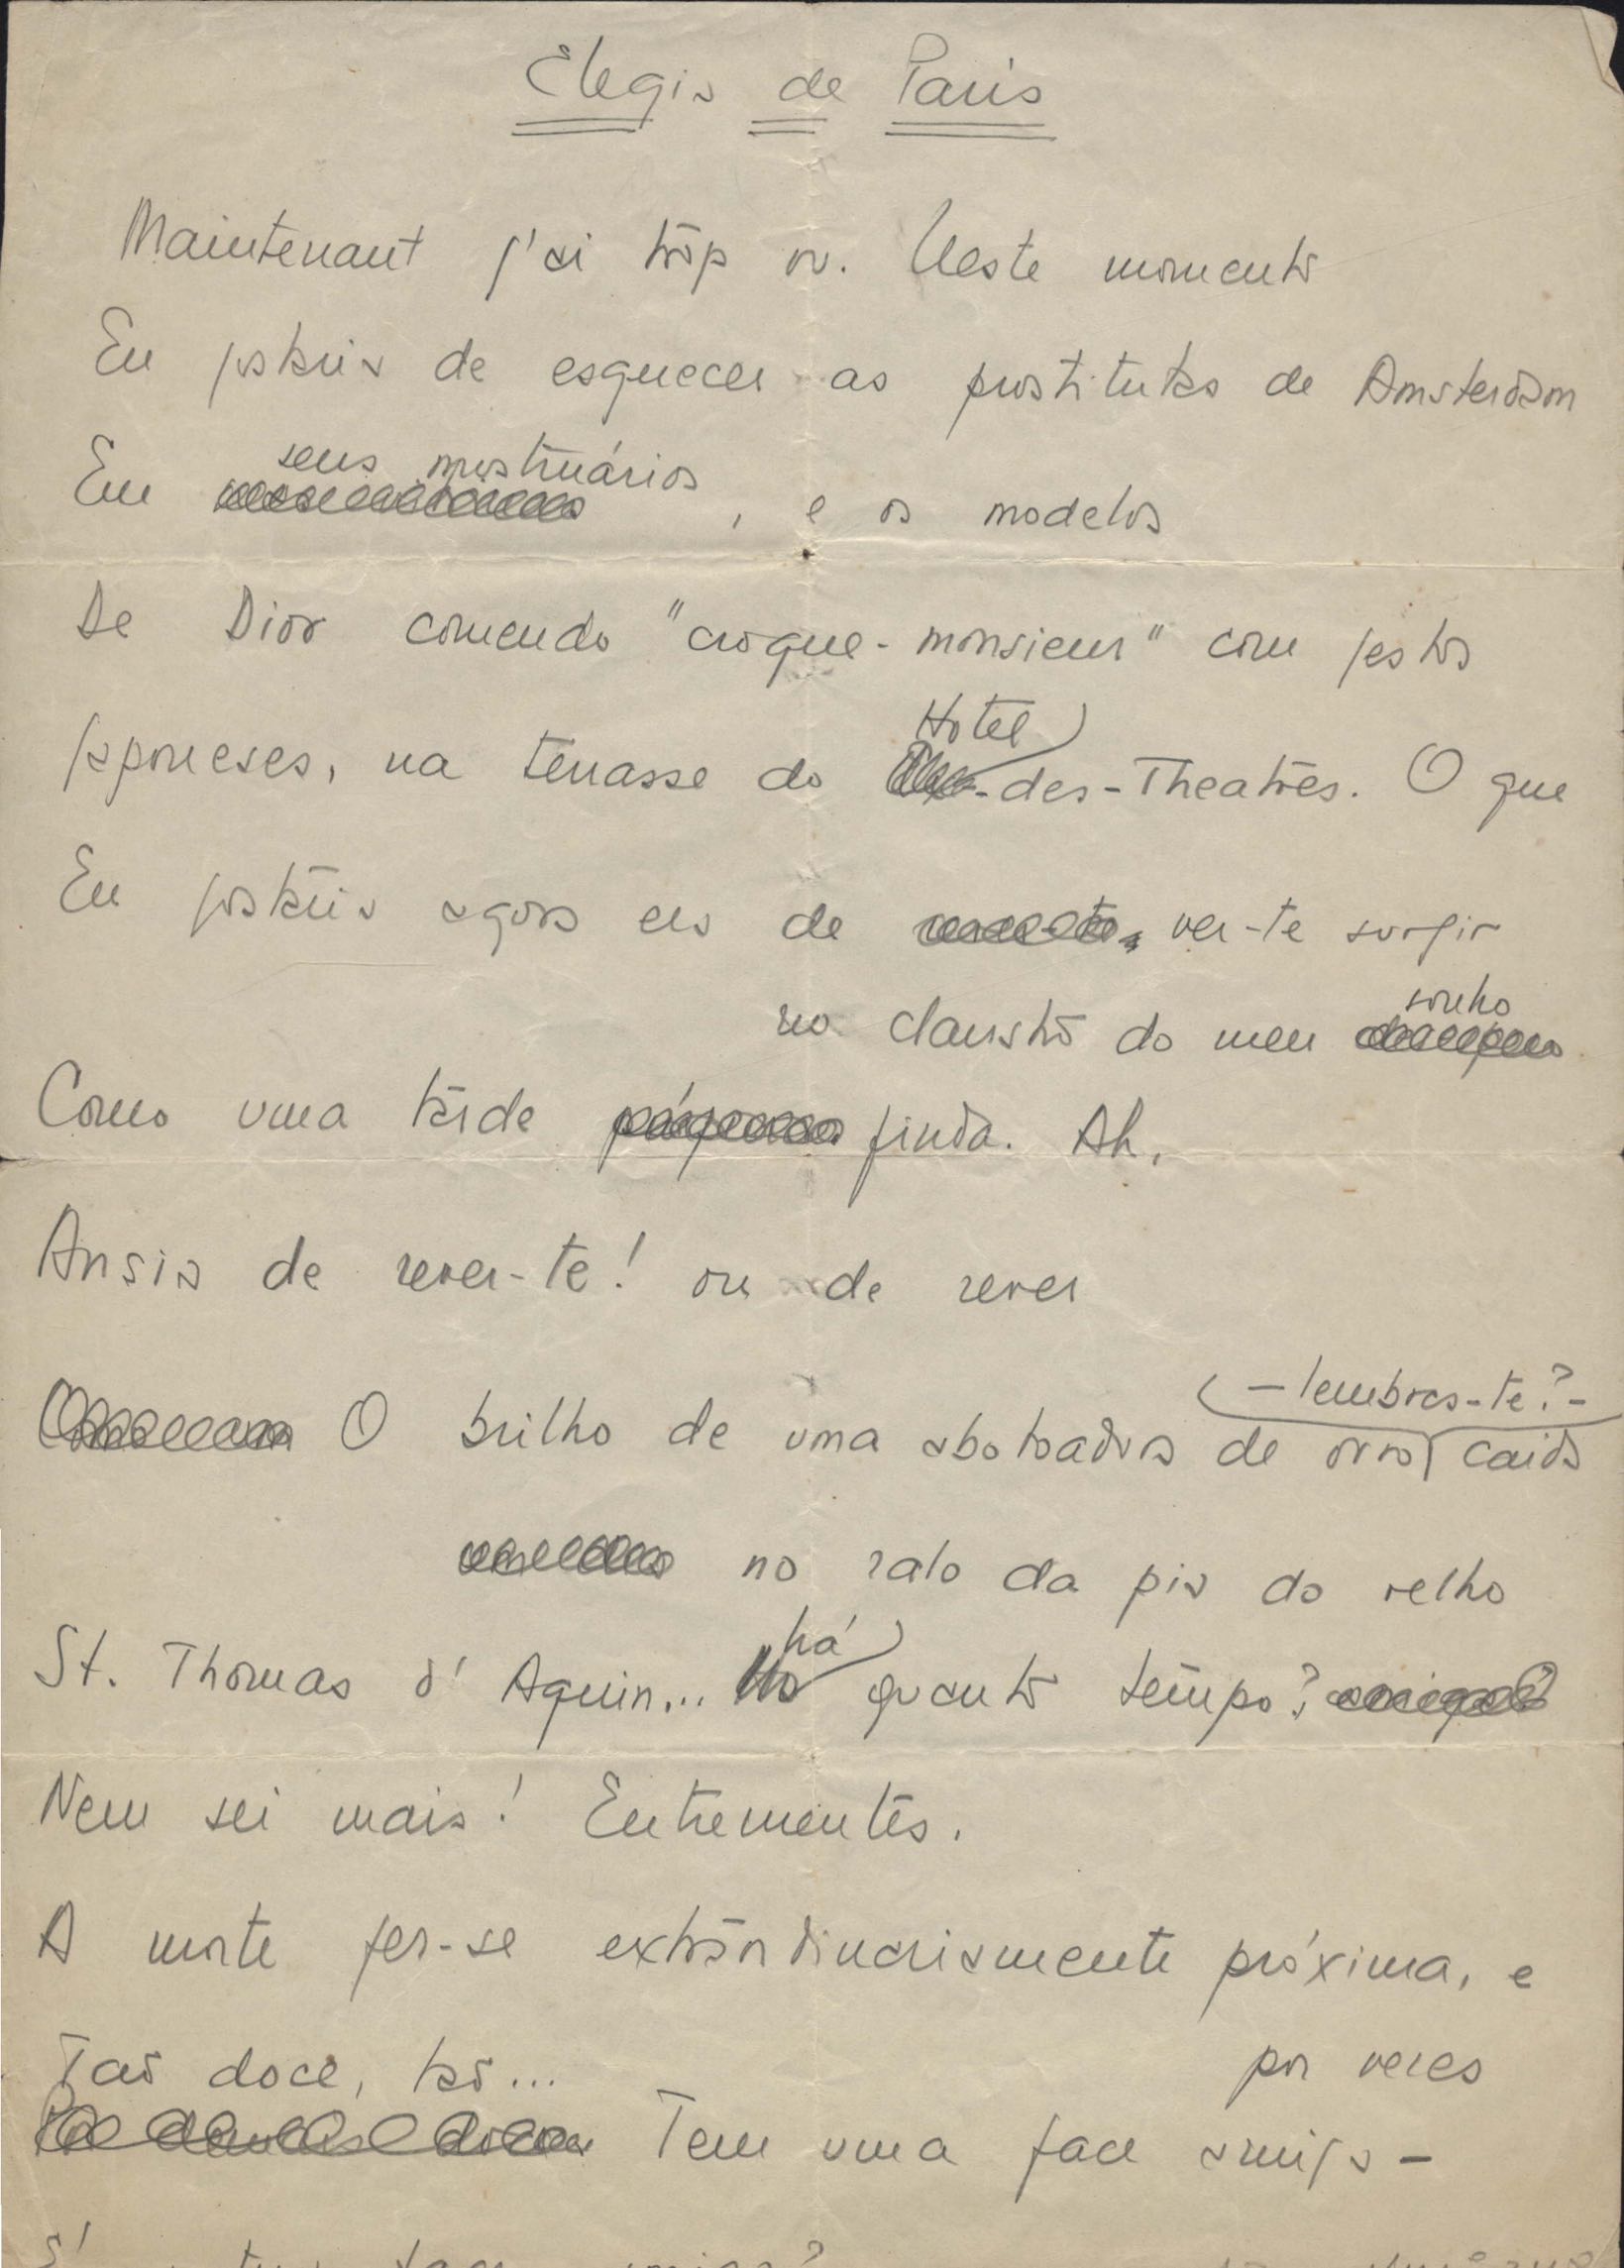 Elegia de Paris
Maintenant j'ai trop vu. Neste momento
Eu gostaria de esquecer as prostitutas de Amsterdam
Em seus mostruários, e os modelos
De Dior comendo "croque-monsieur" com gestos
japoneses, na terrasse do Hotel-des-Theatres. O que
Eu gostaria agora era de ver-te surgir
no claustro do meu sonho
Como uma tarde finda. Ah,
Ansia de rever-te! ou de rever
O brilho de uma abotoadura de ouro - lembras-te? - caida
no ralo da pia do velho
St. Thomas d'Aquin... há quanto tempo?
Nem sei mais! Entrementes,
A morte fez-se extraordinariamente próxima, e
por vezes
Tão doce, tão...
Tem uma face amiga -